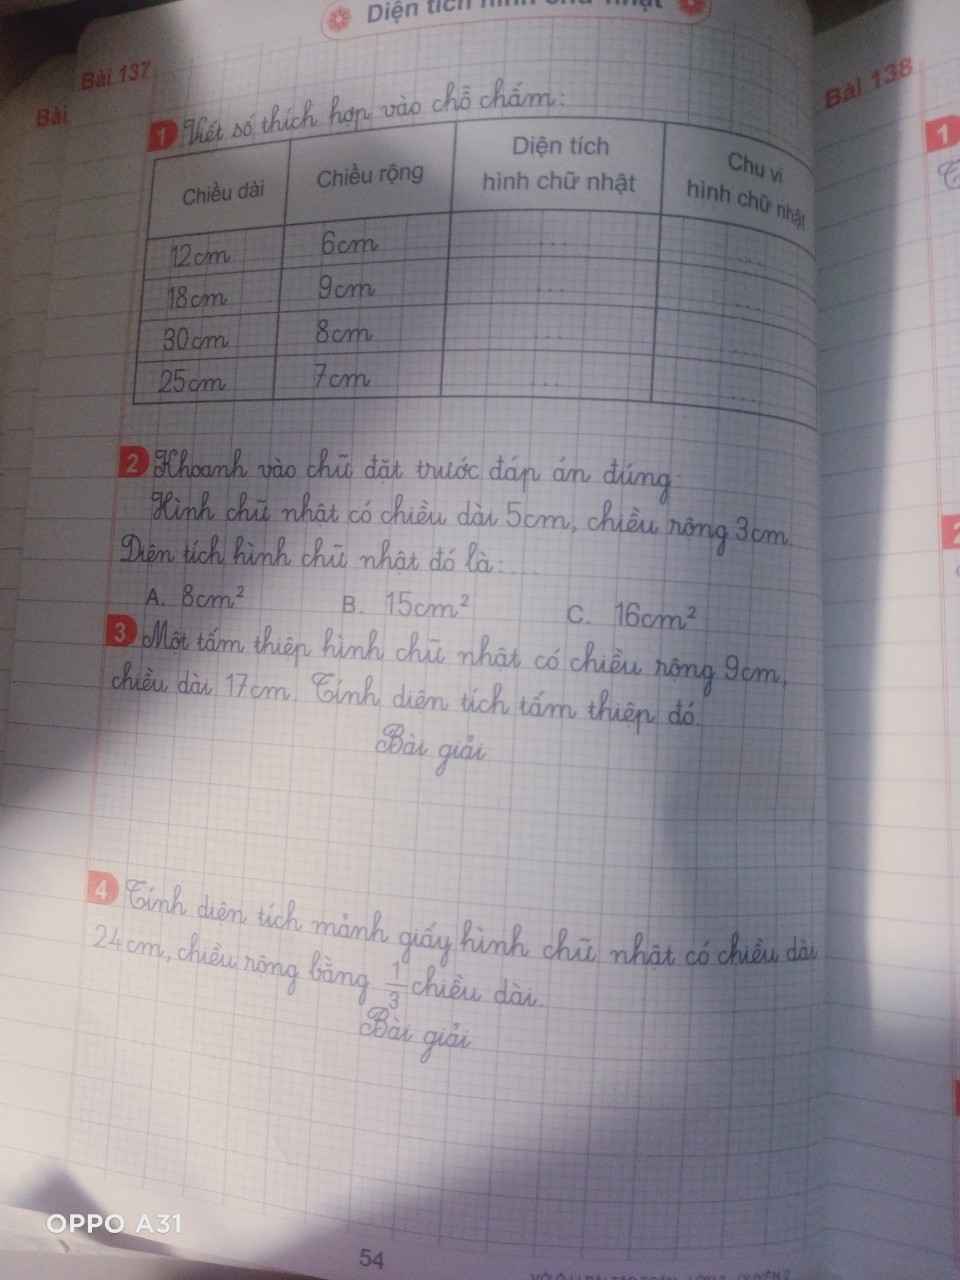 Diện tích hình chữ nhật
Bài 137
Bài
Bài 138
1 Viết số thích hợp vào chỗ chấm:
Chiều dài Chiều rộng Diện tích hình chữ nhật Chu vi hình chữ nhật
12cm 6cm ... ...
18cm 9cm ... ...
30cm 8cm ... ...
25cm 7cm ... ...
2 Khoanh vào chữ đặt trước đáp án đúng:
Hình chữ nhật có chiều dài 5cm, chiều rộng 3cm.
Diện tích hình chữ nhật đó là: ....
A. 8cm² B. 15cm² C. 16cm²
3 Một tấm thiệp hình chữ nhật có chiều rộng 9cm,
chiều dài 17cm. Tính diện tích tấm thiệp đó.
Bài giải
4 Tính diện tích mảnh giấy hình chữ nhật có chiều dài
24cm, chiều rộng bằng 1/3 chiều dài.
Bài giải
1
2
OPPO A31
54